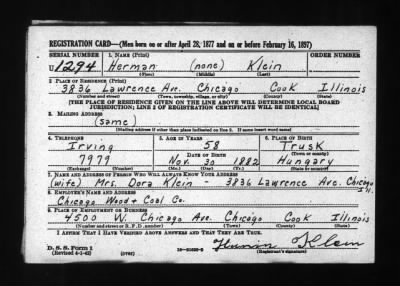 REGISTRATION CARD—(Men born on or after April 28, 1877 and on or before February 16, 1897)
SERIAL NUMBER 1. NAME (Print) ORDER NUMBER
U 1294 Herman (none) Klein
(First) (Middle) (Last)
2. PLACE OF RESIDENCE (Print)
3836 Lawrence Av. Chicago Cook Illinois
(Number and street) (Town, township, village, or city) (County) (State)
[THE PLACE OF RESIDENCE GIVEN ON THE LINE ABOVE WILL DETERMINE LOCAL BOARD
JURISDICTION; LINE 2 OF REGISTRATION CERTIFICATE WILL BE IDENTICAL]
3. MAILING ADDRESS
(same)
[Mailing address if other than place indicated on line 2. If same insert word same]
4. TELEPHONE 5. AGE IN YEARS 6. PLACE OF BIRTH
Irving 58 Trusk
DATE OF BIRTH (Town or county)
7979 Nov. 30 1882 Hungary
(Exchange) (Number) (Mo.) (Day) (Yr.) (State or country)
7. NAME AND ADDRESS OF PERSON WHO WILL ALWAYS KNOW YOUR ADDRESS
(wife) Mrs. Dora Klein - 3836 Lawrence Ave. Chicago
8. EMPLOYER'S NAME AND ADDRESS
Chicago Wood + Coal Co.
9. PLACE OF EMPLOYMENT OR BUSINESS
4500 W. Chicago Ave. Chicago Cook Illinois
(Number and street or R. F. D. number) (Town) (County) (State)
I AFFIRM THAT I HAVE VERIFIED ABOVE ANSWERS AND THAT THEY ARE TRUE.
D. S. S. Form 1
(Revised 4-1-42) (over) (Registrant's signature)
Klein